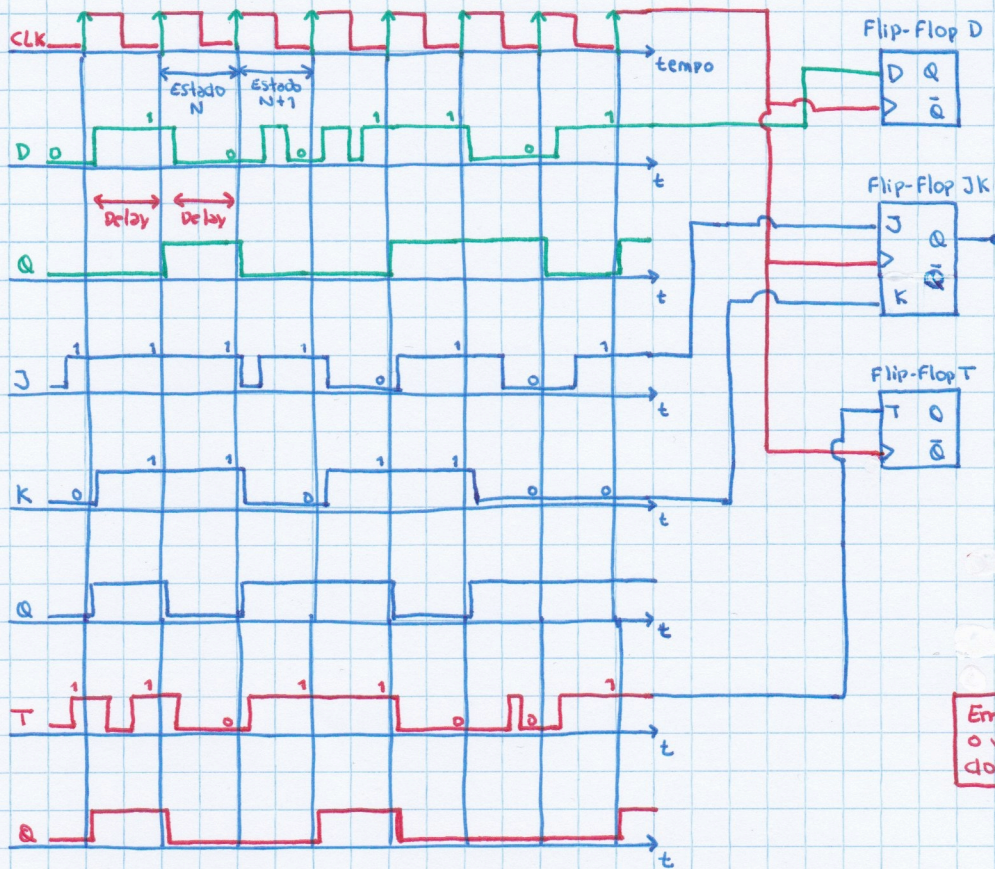 CLK
tempo
Estado
N
Estado
N+1
D 0 1 0 0 1 1 0 1
t
Delay
Delay
Q
t
J 1 1 1 1 0 1 0 1
t
K 0 1 1 0 1 1 0 0
t
Q
t
T 1 1 0 1 1 0 0 1
t
Q
t
Flip-Flop D
D Q
Q̅
Flip-Flop JK
J
Q
Q̅
K
Flip-Flop T
T Q
Q̅